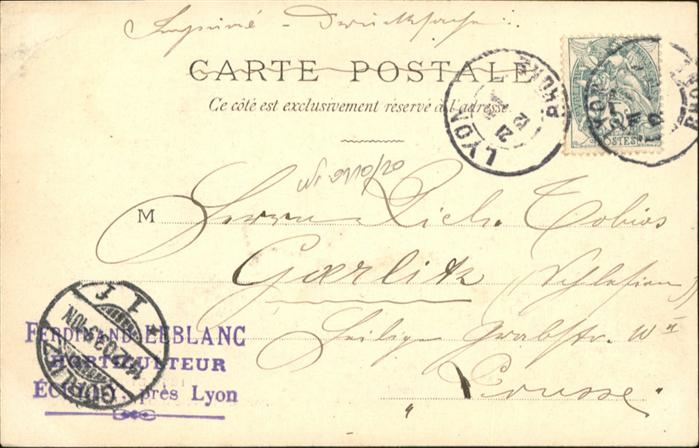 Imprimé - Drucksache
CARTE POSTALE
Ce côté est exclusivement réservé à l'adresse
LYON RHONE
POSTES
M Herrn Rich. Tobias
Goerlitz (Schlesien)
Heilige Grabstr.
"Prusse"
FERDINAND LEBLANC
HORTICULTEUR
près Lyon